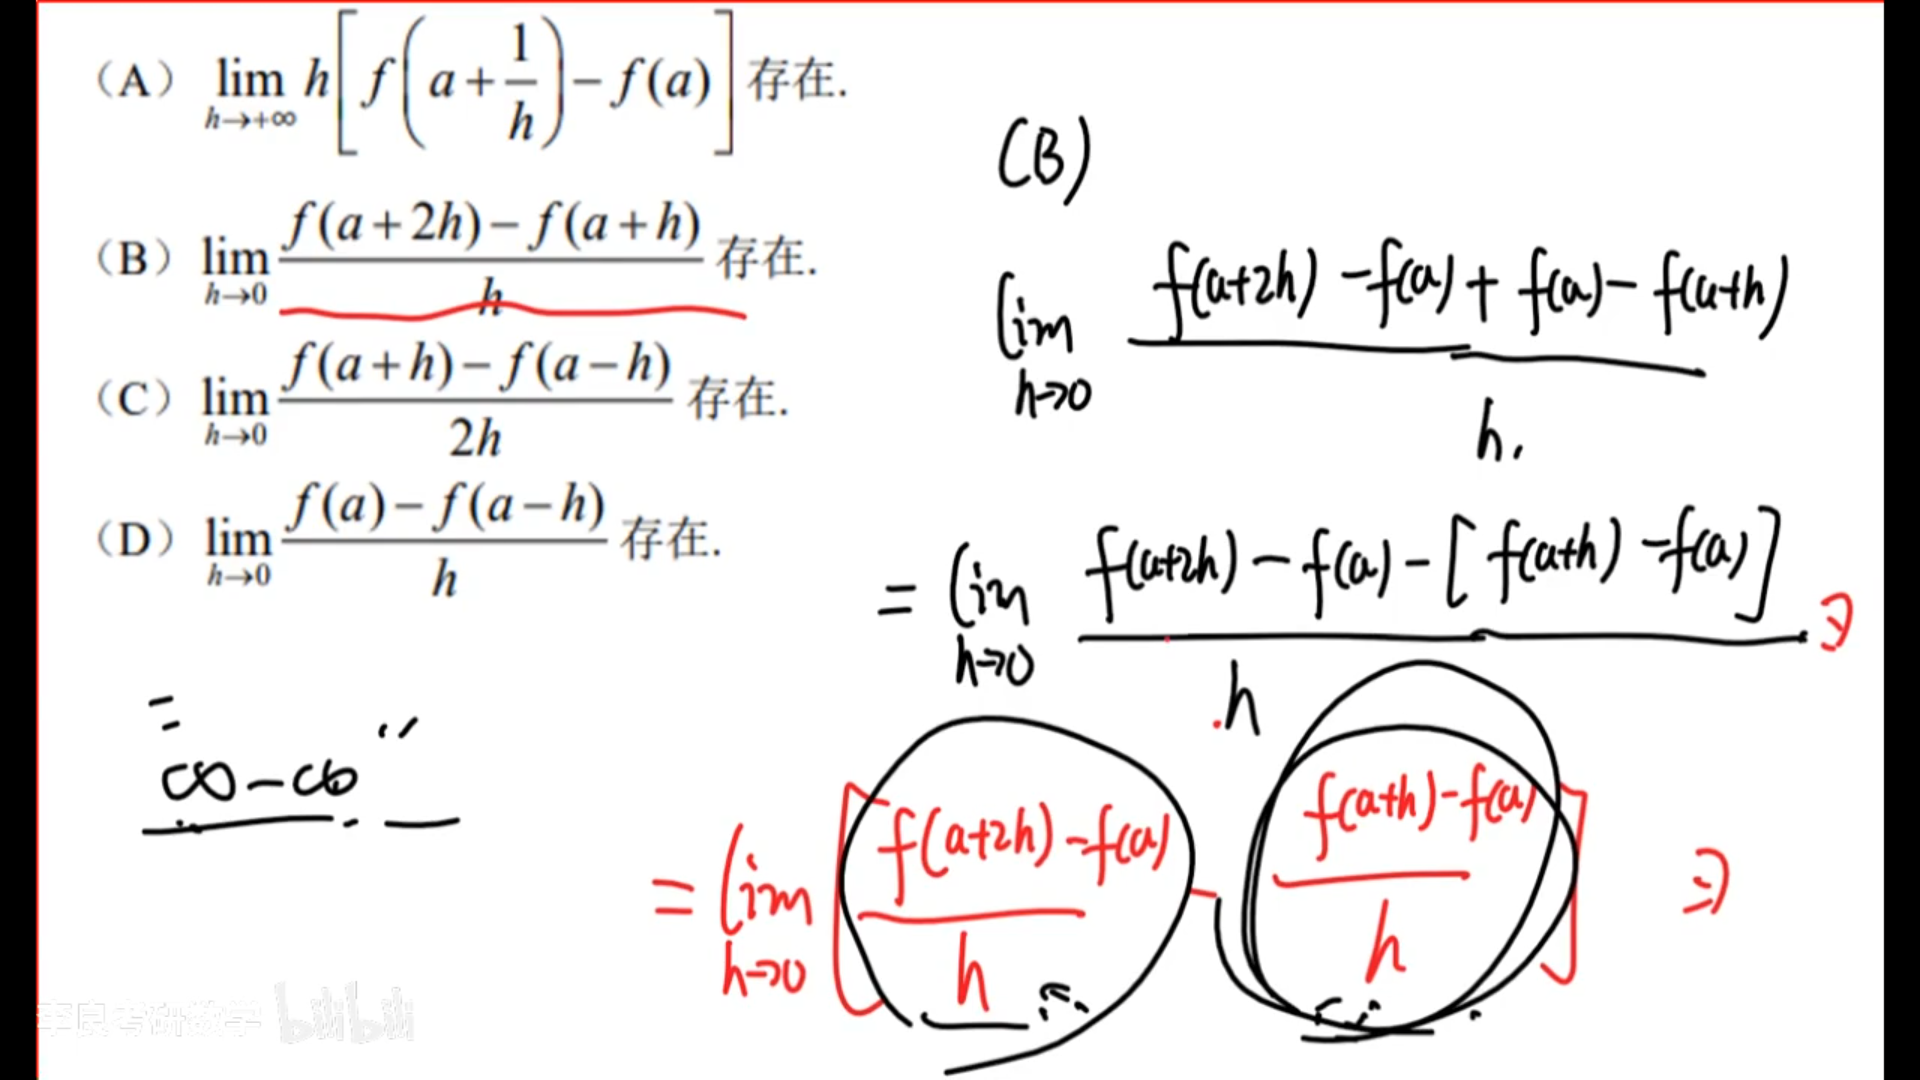 (A) lim h→+∞ h[f(a+1/h)−f(a)] 存在.
(B) lim h→0 (f(a+2h)−f(a+h))/h 存在.
(C) lim h→0 (f(a+h)−f(a−h))/2h 存在.
(D) lim h→0 (f(a)−f(a−h))/h 存在.
(B)
lim h→0 (f(a+2h)−f(a)+f(a)−f(a+h))/h.
= lim h→0 (f(a+2h)−f(a)−[f(a+h)−f(a)])/h ∃
= lim h→0 [(f(a+2h)−f(a))/h − (f(a+h)−f(a))/h] ∃
"∞−∞"
李良考研数学 bilibili